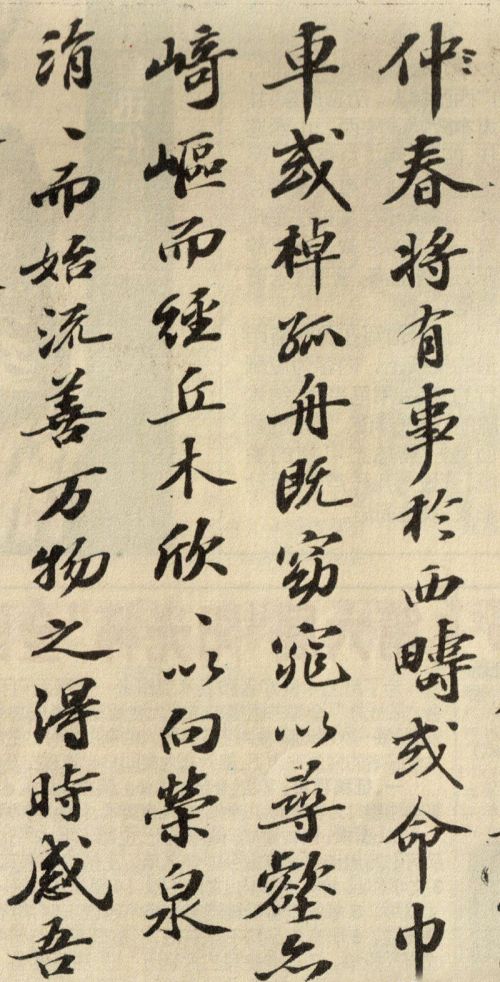 仲春將有事於西疇或命巾
車或棹孤舟既窈窕以尋壑亦
崎嶇而經丘木欣、以向榮泉
涓、而始流善万物之得時感吾